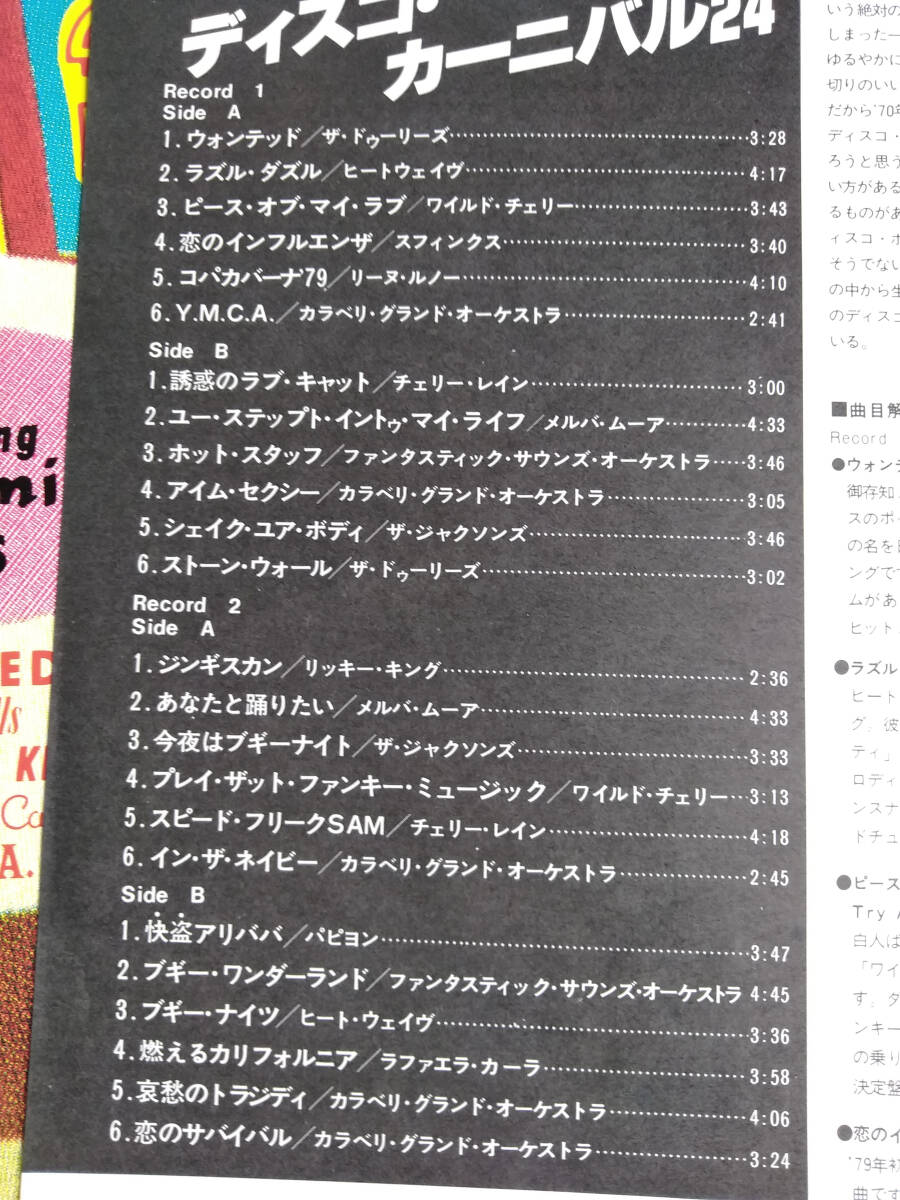 ディスコ・
カーニバル24
Record 1
Side A
1. ウォンテッド／ザ・ドゥーリーズ……3:28
2. ラズル・ダズル／ヒートウェイヴ……4:17
3. ピース・オブ・マイ・ラブ／ワイルド・チェリー……3:43
4. 恋のインフルエンザ／スフィンクス……3:40
5. コパカバーナ79／リーヌ・ルノー……4:10
6. Y.M.C.A.／カラベリ・グランド・オーケストラ……2:41
Side B
1. 誘惑のラブ・キャット／チェリー・レイン……3:00
2. ユー・ステップト・イントゥ・マイ・ライフ／メルバ・ムーア……4:33
3. ホット・スタッフ／ファンタスティック・サウンズ・オーケストラ……3:46
4. アイム・セクシー／カラベリ・グランド・オーケストラ……3:05
5. シェイク・ユア・ボディ／ザ・ジャクソンズ……3:46
6. ストーン・ウォール／ザ・ドゥーリーズ……3:02
Record 2
Side A
1. ジンギスカン／リッキー・キング……2:36
2. あなたと踊りたい／メルバ・ムーア……4:33
3. 今夜はブギーナイト／ザ・ジャクソンズ……3:33
4. プレイ・ザット・ファンキー・ミュージック／ワイルド・チェリー…3:13
5. スピード・フリークSAM／チェリー・レイン……4:18
6. イン・ザ・ネイビー／カラベリ・グランド・オーケストラ……2:45
Side B
1. 快盗アリババ／パピヨン……3:47
2. ブギー・ワンダーランド／ファンタスティック・サウンズ・オーケストラ 4:45
3. ブギー・ナイツ／ヒート・ウェイヴ……3:36
4. 燃えるカリフォルニア／ラファエラ・カーラ……3:58
5. 哀愁のトラジディ／カラベリ・グランド・オーケストラ……4:06
6. 恋のサバイバル／カラベリ・グランド・オーケストラ……3:24
いう絶対の
しまった一
ゆるやかに
切りのいい
だから'70年
ディスコ・
ろうと思う
い方がある
るものがあ
ィスコ・ポ
そうでない
の中から生
のディスコ
いる。
■曲目解
Record
●ウォンテ
御存知、
スのポッ
の名を
ングでで
ムがあ
ヒット、
●ラズル
ヒート
グ。彼
ティ」
ロディ
ンスナ
ドチュ
●ピース
Try A
白人ば
「ワイ
す。タ
ンキー
の乗り
決定盤
●恋のイ
'79年初
曲です
ng
mi
S
E D
lls
KI
Ca
A.